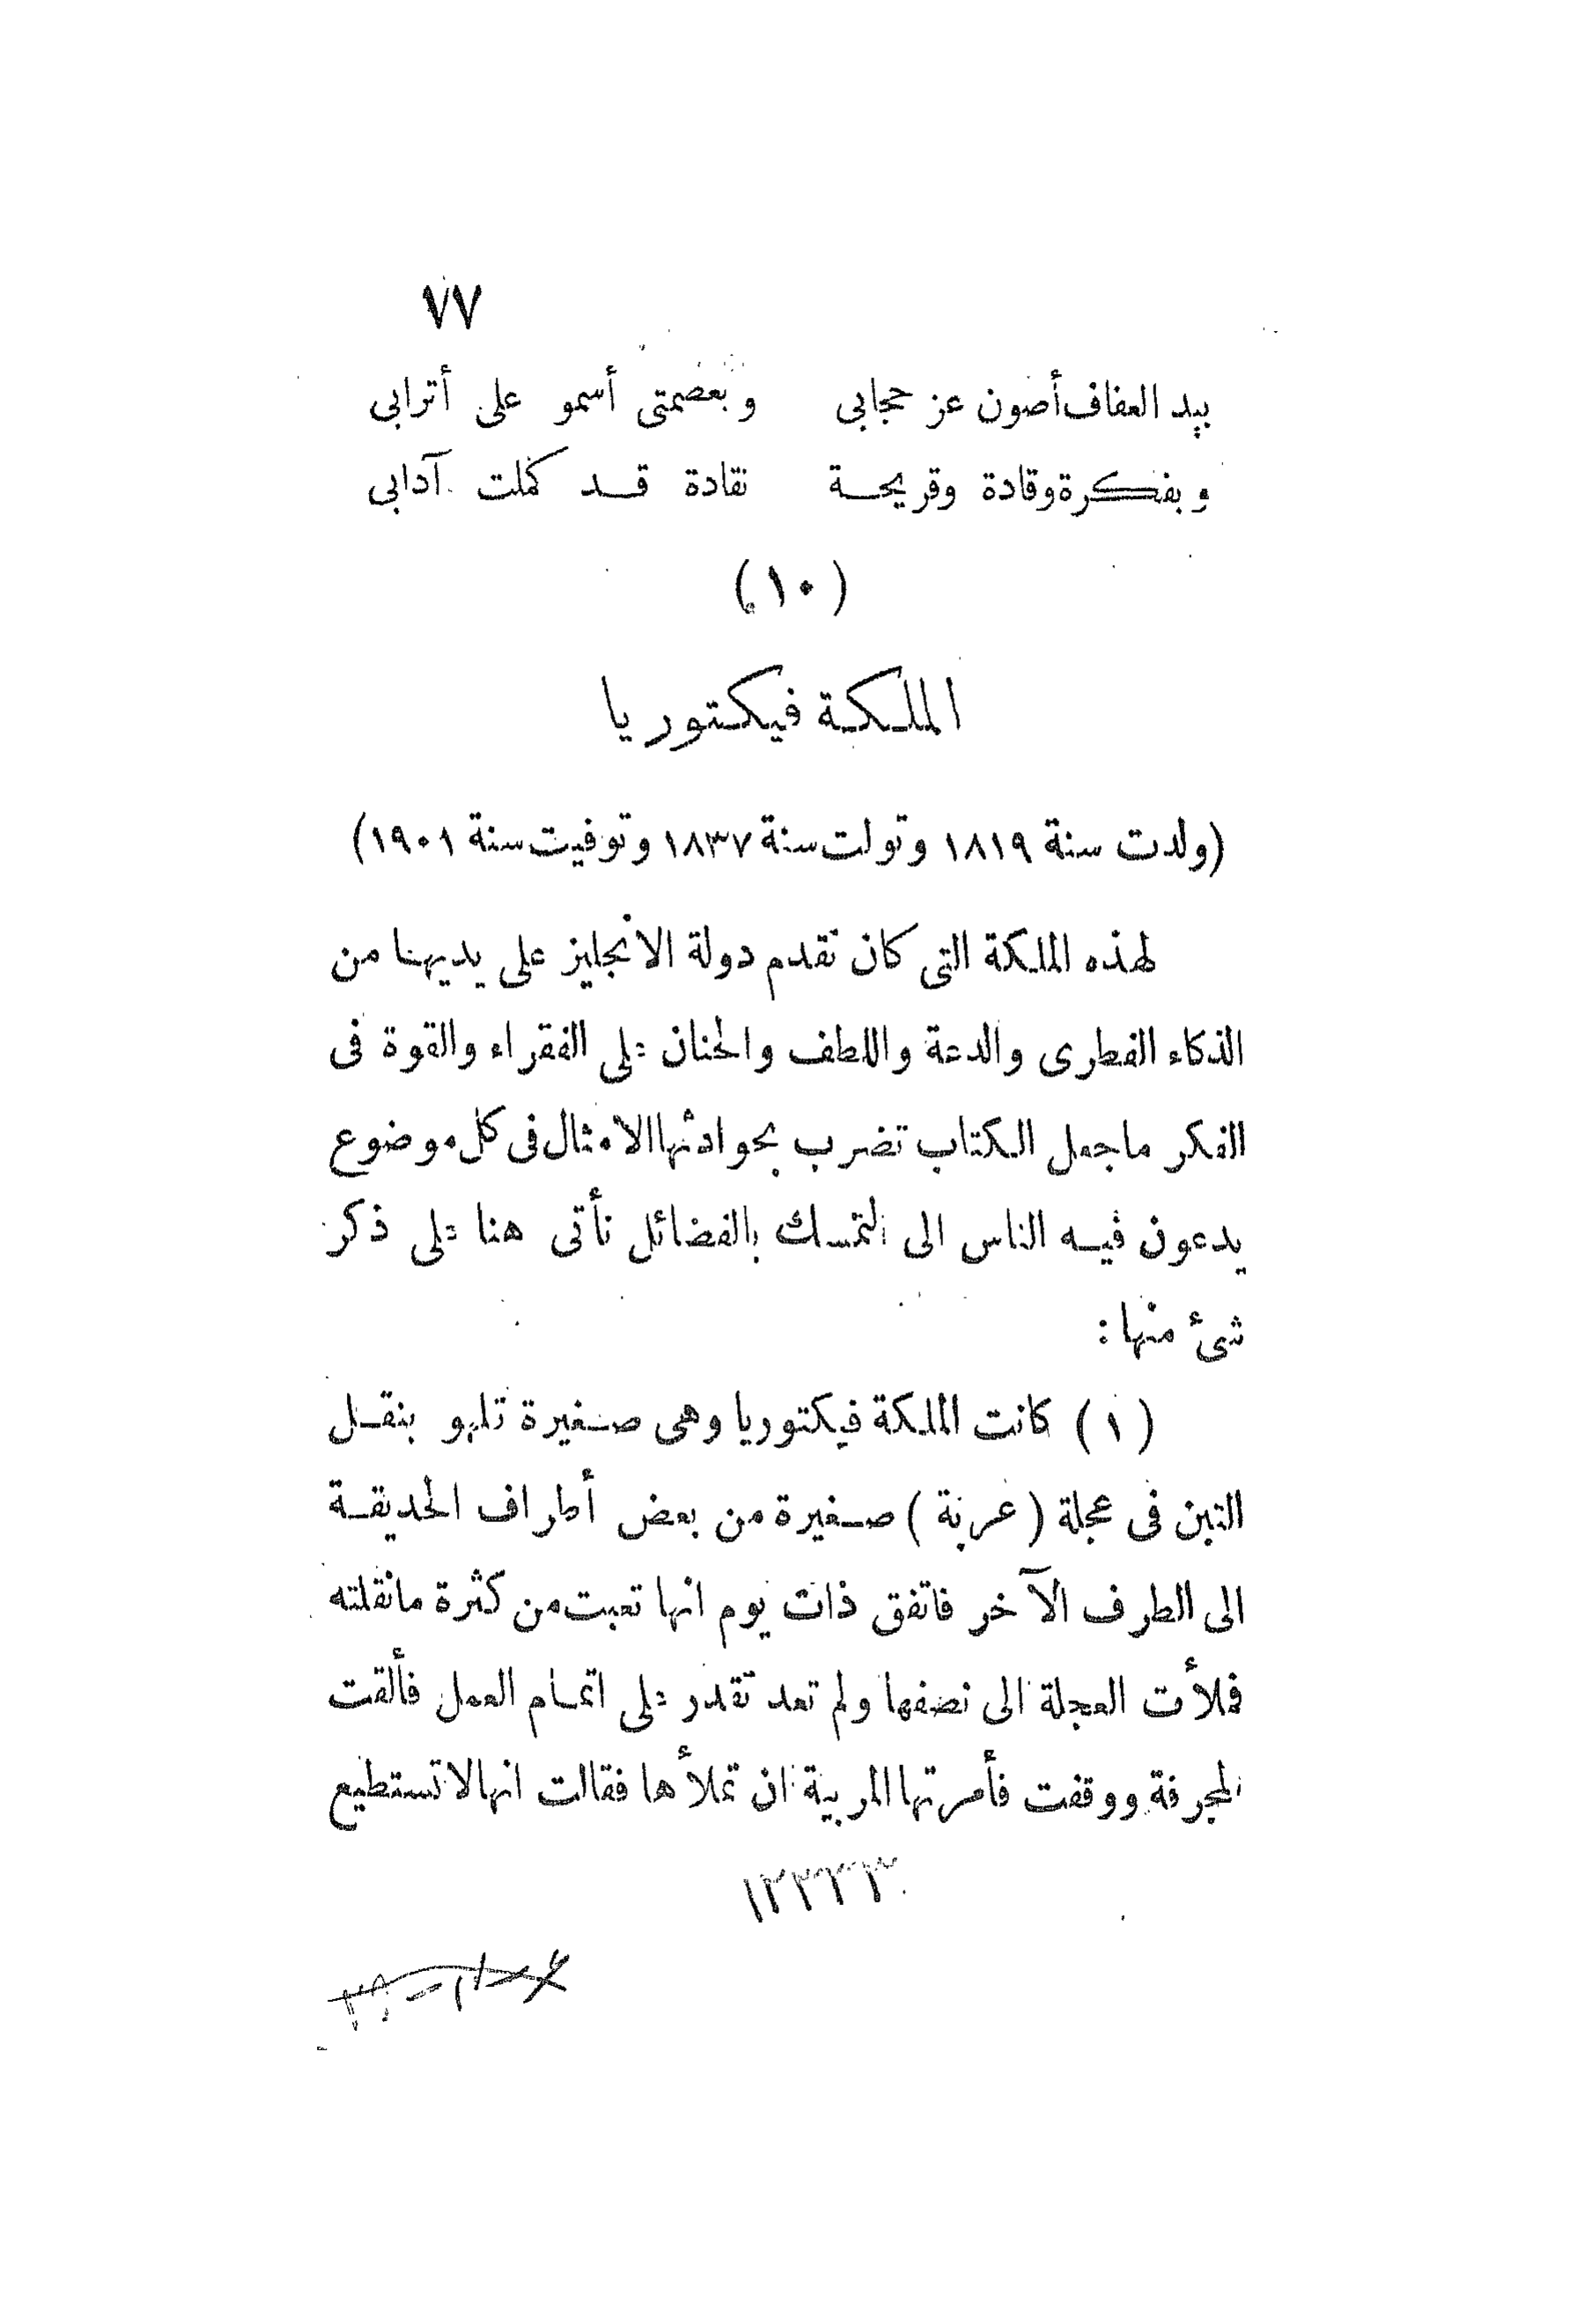 ٧٧
بيد العفاف أصون عز حجابى وبعصمتى أسمو على أترابى
وبفكرة وقادة وقريحة نقادة قد كملت آدابى
(١٠)
الملكة فيكتوريا
(ولدت سنة ١٨١٩ وتولت سنة ١٨٣٧ وتوفيت سنة ١٩٠١)
لهذه الملكة التى كان تقدم دولة الانجليز على يديها من
الذكاء الفطرى والدعة واللطف والحنان على الفقراء والقوة فى
الفكر ماجعل الكتاب تضرب بحوادثها الامثال فى كل موضوع
يدعون فيه الناس الى التمسك بالفضائل نأتى هنا على ذكر
شئ منها :
(١) كانت الملكة فيكتوريا وهى صغيرة تلهو بنقل
التبن فى عجلة (عربة) صغيرة من بعض أطراف الحديقة
الى الطرف الآخر فاتفق ذات يوم انها تعبت من كثرة مانقلته
فملأت العجلة الى نصفها ولم تعد تقدر على اتمام العمل فألقت
المجرفة ووقفت فأمرتها المربية ان تملأها فقالت انها لاتستطيع
١٢٣٣٣